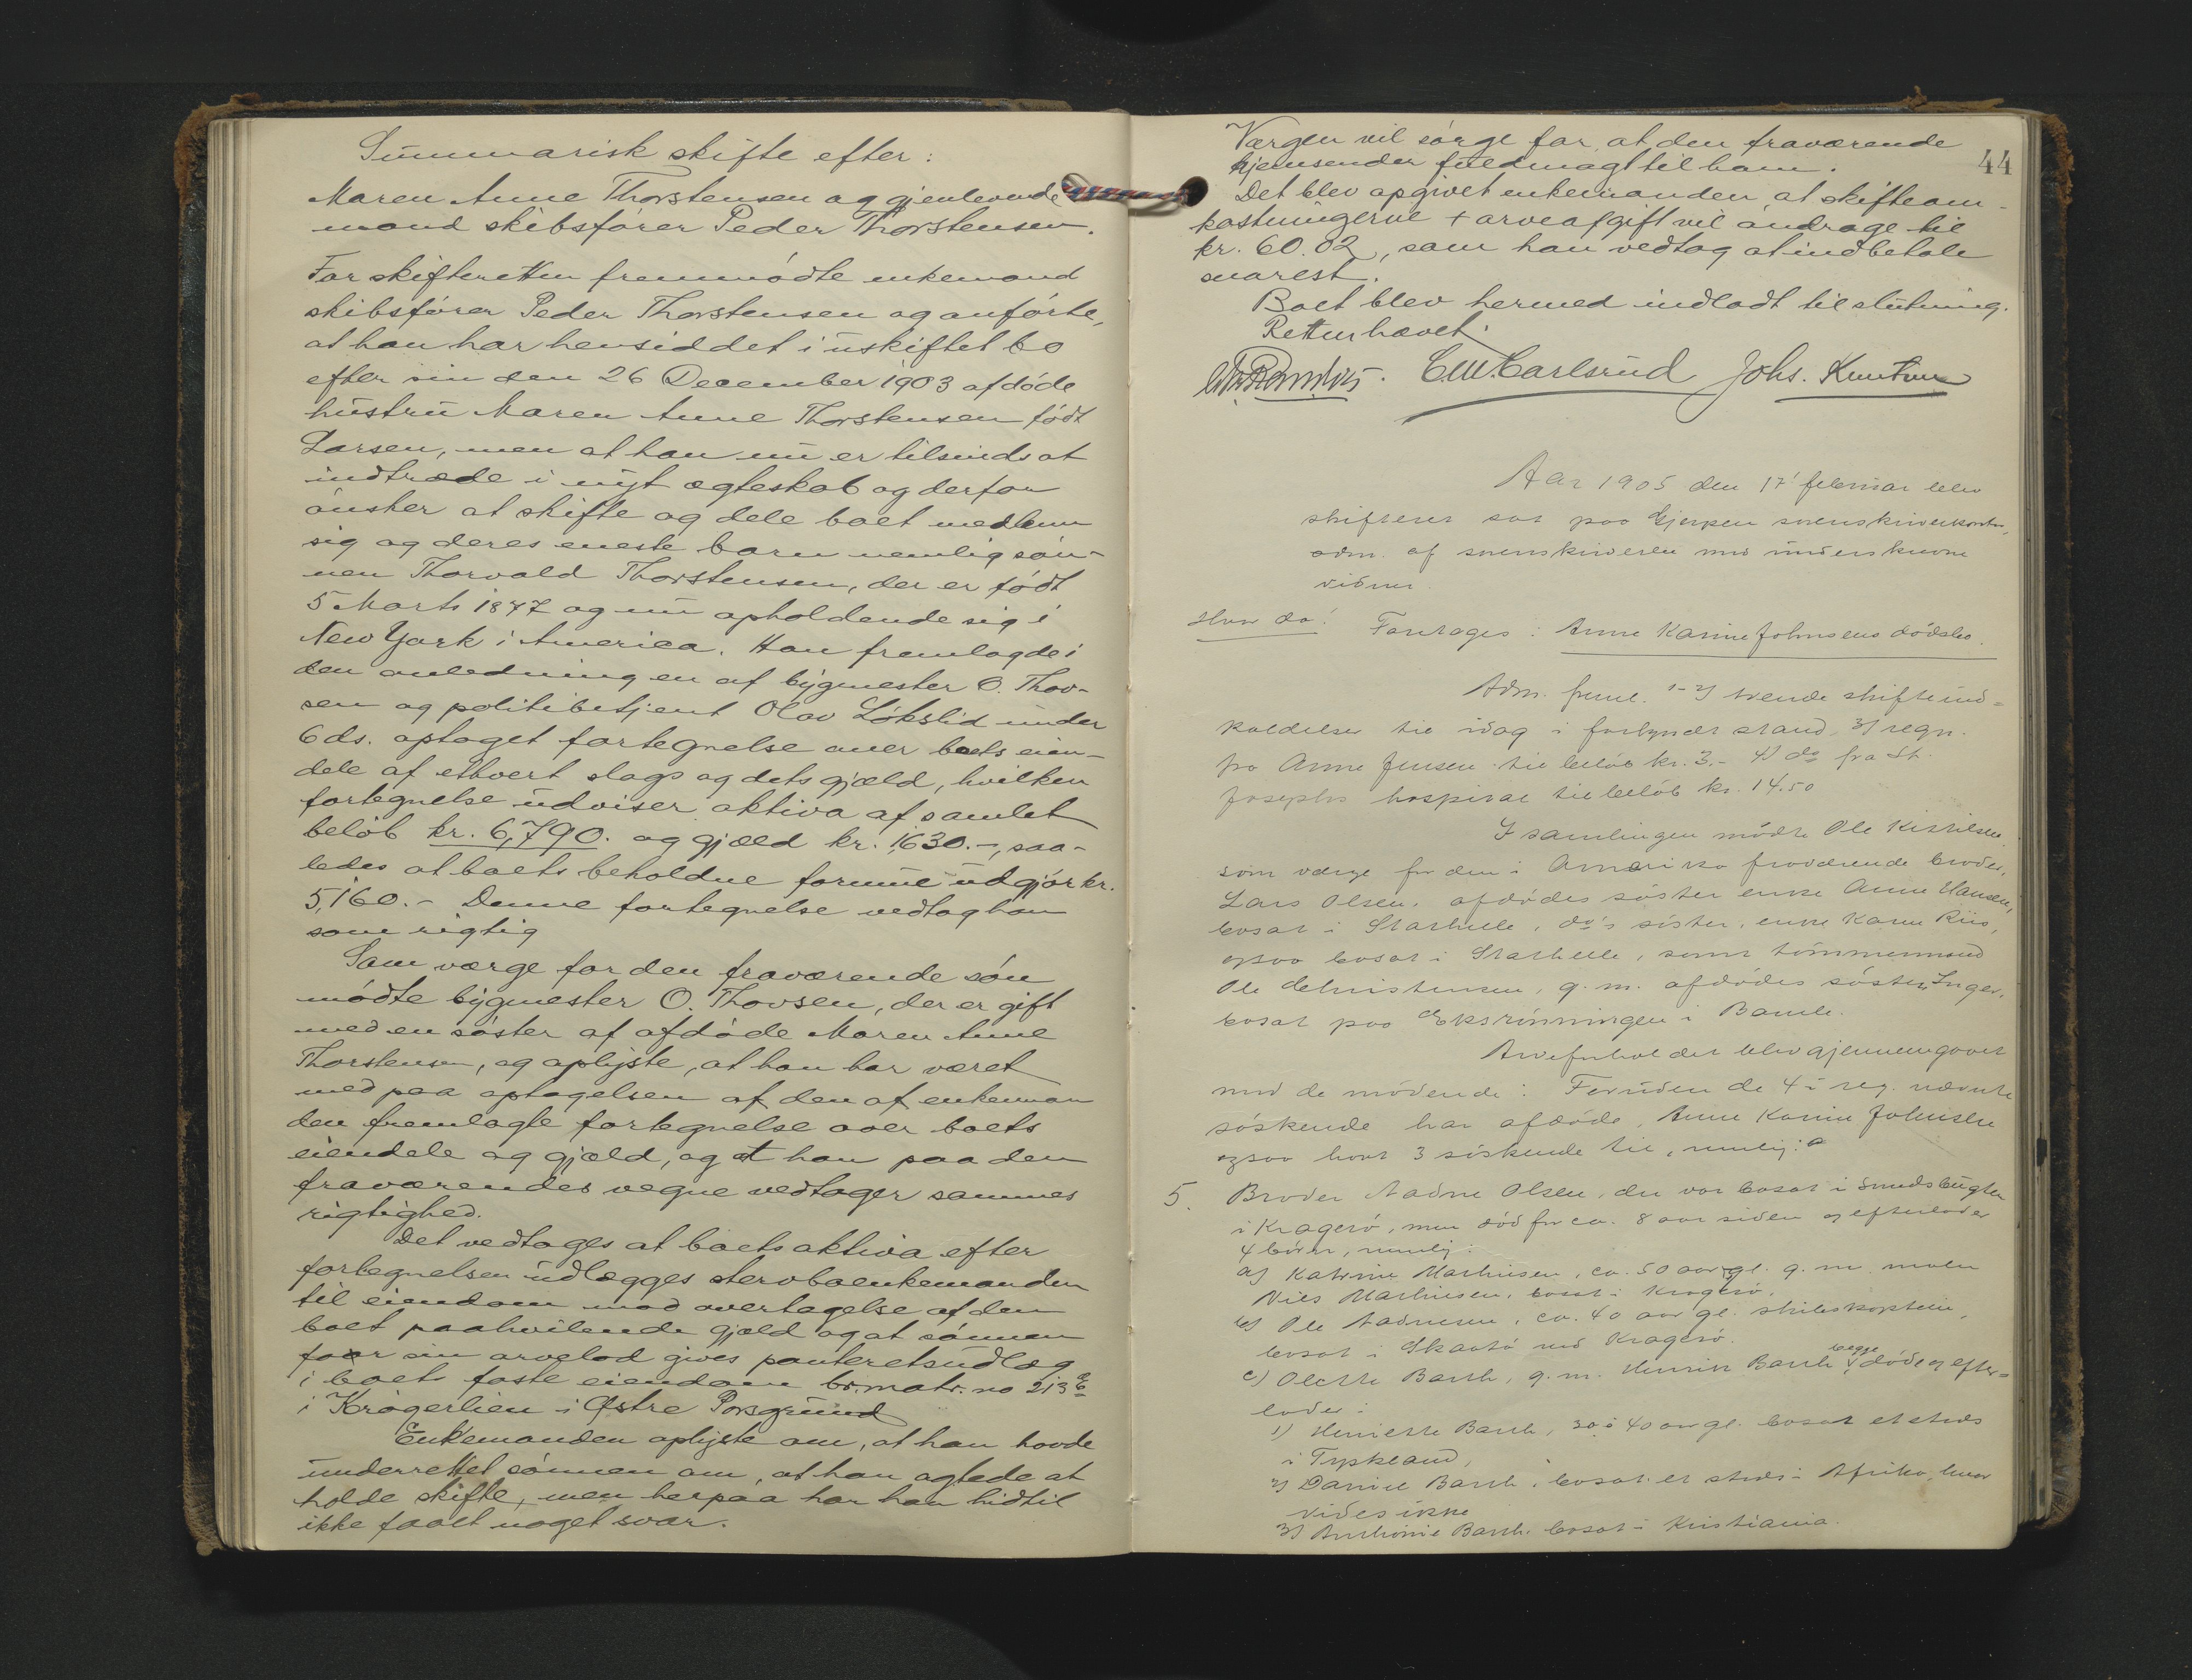 Summarisk skifte efter:
Maren Anne Thorstensen og gjenlevende
mand skibsfører Peder Thorstensen.
For skifteretten fremmødte enkemand
skibsfører Peder Thorstensen og anførte,
at han har hensiddet i uskiftet bo
efter sin den 26 December 1903 afdøde
hustru Maren Anne Thorstensen født
Larsen, men at han nu er tilsinds at
indtræde i nyt ægteskab og derfor
ønsker at skifte og dele boet mellem
sig og deres eneste barn nemlig søn-
nen Thorvald Thorstensen, der er født
5 Marts 1877 og nu opholdende sig i
New York i America. Han fremlagde i
den anledning en af bygmester O. Thov-
sen og politibetjent Olav Løkslid under
6 ds. optaget fortegnelse over boets eien-
dele af ethvert slags og dets gjæld, hvilken
fortegnelse udviser aktiva af samlet
beløb kr. 6,790. og gjæld kr. 1,630.-, saa-
ledes at boets beholdne formue udgjør kr.
5,160.- Denne fortegnelse vedtog han
som rigtig
Som værge for den fraværende søn
mødte bygmester O. Thovsen, der er gift
med en søster af afdøde Maren Anne
Thorstensen, og oplyste, at han har været
med paa optagelsen af den af enkeman
den fremlagte fortegnelse over boets
eiendele og gjæld, og at han paa den
fraværendes vegne vedtager sammes
rigtighed.
Det vedtages at boets aktiva efter
fortegnelsen udlægges stervboenkemanden
til eiendom mod overtagelse af den
boet paahvilende gjæld og at sønnen
for sin arvelod gives panteretsudlæg
i boets faste eiendom br.matr. no 213
i Krøgerlien i Østre Porsgrund
Enkemanden oplyste om, at han havde
underrettet sønnen om, at han agtede at
holde skifte, men herpaa har han hidtil
ikke faaet noget svar.
44
Værgen vil sørge for, at den fraværende
hjemsender fuldmagt til ham.
Det blev opgivet enkemanden, at skifteom-
kostningerne + arveafgift vil andrage til
kr. 60.02, som han vedtog at indbetale
snarest.
Boet blev hermed indladt til slutning.
Retten hævet.
C.W. Carlsrud Johs. Knutsen
Aar 1905 den 17 februar blev
skifteret sat paa Gjerpen sorenskriverkontor,
adm. af sorenskriveren med underskrevne
vidner.
Hvor da: Foretages: Anne Karine Johnsens dødsbo.
Adm. freml. 1-2) tvende skifteind-
kaldelser til idag i forkyndt stand 3) regn.
fra Anne Jensen til beløb kr. 3.- 4) do fra St.
Josephs hospital til beløb kr. 14.50
I samlingen mødte Ole Kittilsen
som værge for den i Amerika fraværende broder,
Lars Olsen, afdødes søster enke Anne Hansen,
bosat i Stathelle, do's søster, enke Karen Riis,
ogsaa bosat i Stathelle, samt tømmermand
Ole Christensen, g. m. afdødes søster Inger,
bosat paa Eksrønningen i Bamle.
Arveforholdet blev gjennemgaaet
med de mødende: Foruden de 4 i reg. nævnte
søskende har afdøde, Anne Karine Johnsen
ogsaa havt 3 søskende til, nemlig:
5. Broder Aadne Olsen, der var bosat i Smedsbugten
i Kragerø, men død for ca. 8 aar siden og efterlader
4 børn, nemlig:
a) Katrine Mathisen, ca. 50 aar gl. g. m. maler
Nils Mathisen, bosat i Kragerø.
b) Ole Aadnesen, ca. 40 aar gl. skibskaptein,
bosat i Skaatø ved Kragerø.
c) Olette Barth, g. m. Henrik Barth begge døde og efter-
lader:
1) Henriette Barth, 30 à 40 aar gl. bosat etsteds
i Tyskland,
2) Daniel Barth, bosat et steds i Afrika, hvor
vides ikke
3) Barth, bosat i Kristiania.